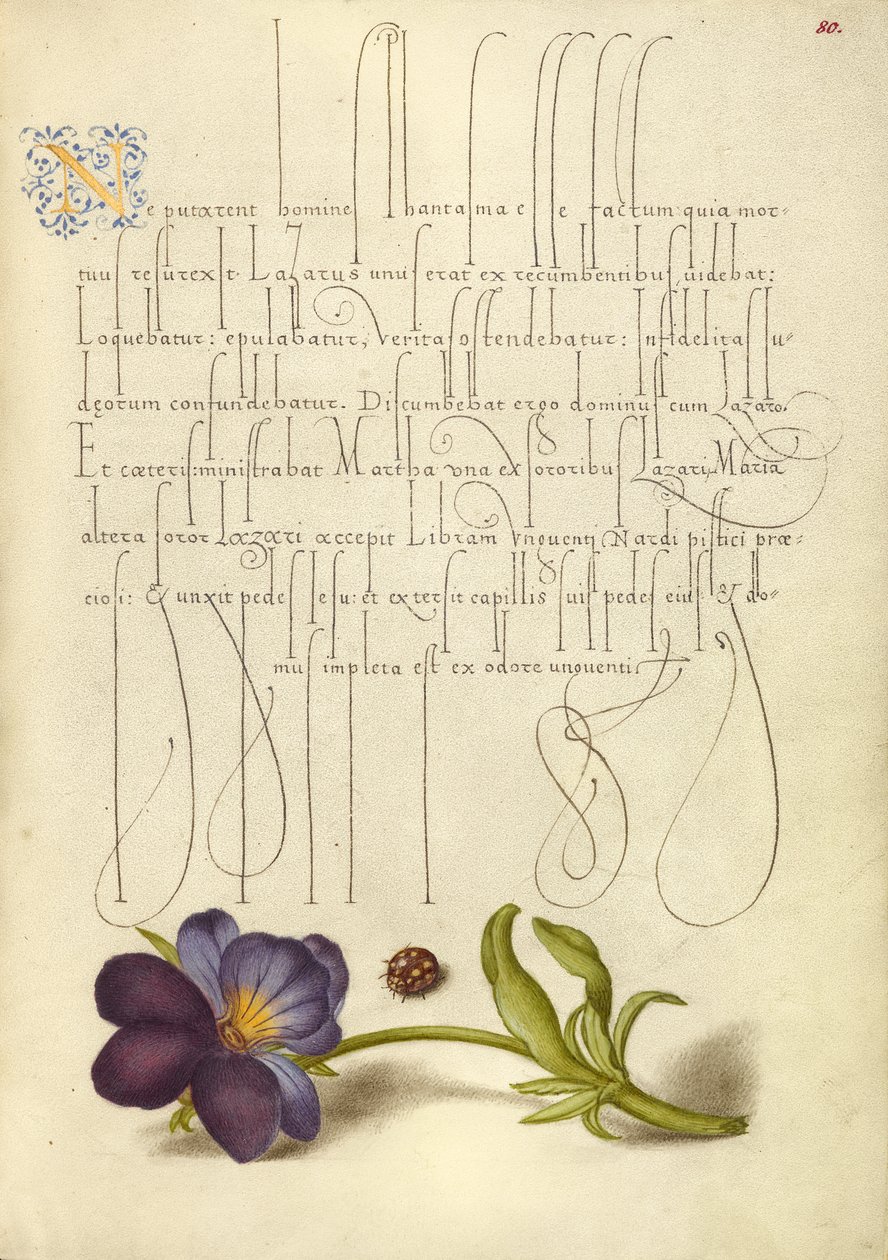 80.
Ne putarent homines Phantasma esse factum quia mor-
tuus resurexit. Lazarus unus erat ex recumbentibus, uidebat:
Loquebatur: epulabatur, Veritas ostendebatur: Infidelitas Iu-
dęorum confundebatur. Discumbebat ergo dominus cum Lazaro.
Et cæteris: ministrabat Martha vna ex sororibus Lazari, Maria
altera soror Lazari accepit Libram Vnguenti Nardi pistici præ-
ciosi: & unxit pedes Iesu: et extersit capillis suis pedes eius & do-
mus impleta est ex odore unguenti.